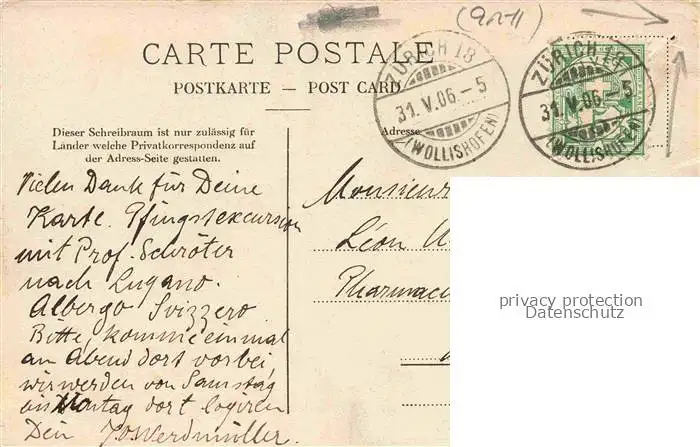 (9211)
CARTE POSTALE
POSTKARTE — POST CARD
ZÜRICH 18
31. V. 06. – 5
(WOLLISHOFEN)
ZÜRICH 18
31. V. 06. – 5
(WOLLISHOFEN)
Dieser Schreibraum ist nur zulässig für
Länder welche Privatkorrespondenz auf
der Adress-Seite gestatten.
Adresse
Vielen Dank für Deine
Karte. Pfingstexcursion
mit Prof. Schröter
nach Lugano.
Albergo Svizzero
Bitte, komme einmal
am Abend dort vorbei,
wir werden von Samstag
bis Montag dort logiren
Dein Werdmüller.
Monsieur
Léon
Pharmaci
privacy protection
Datenschutz